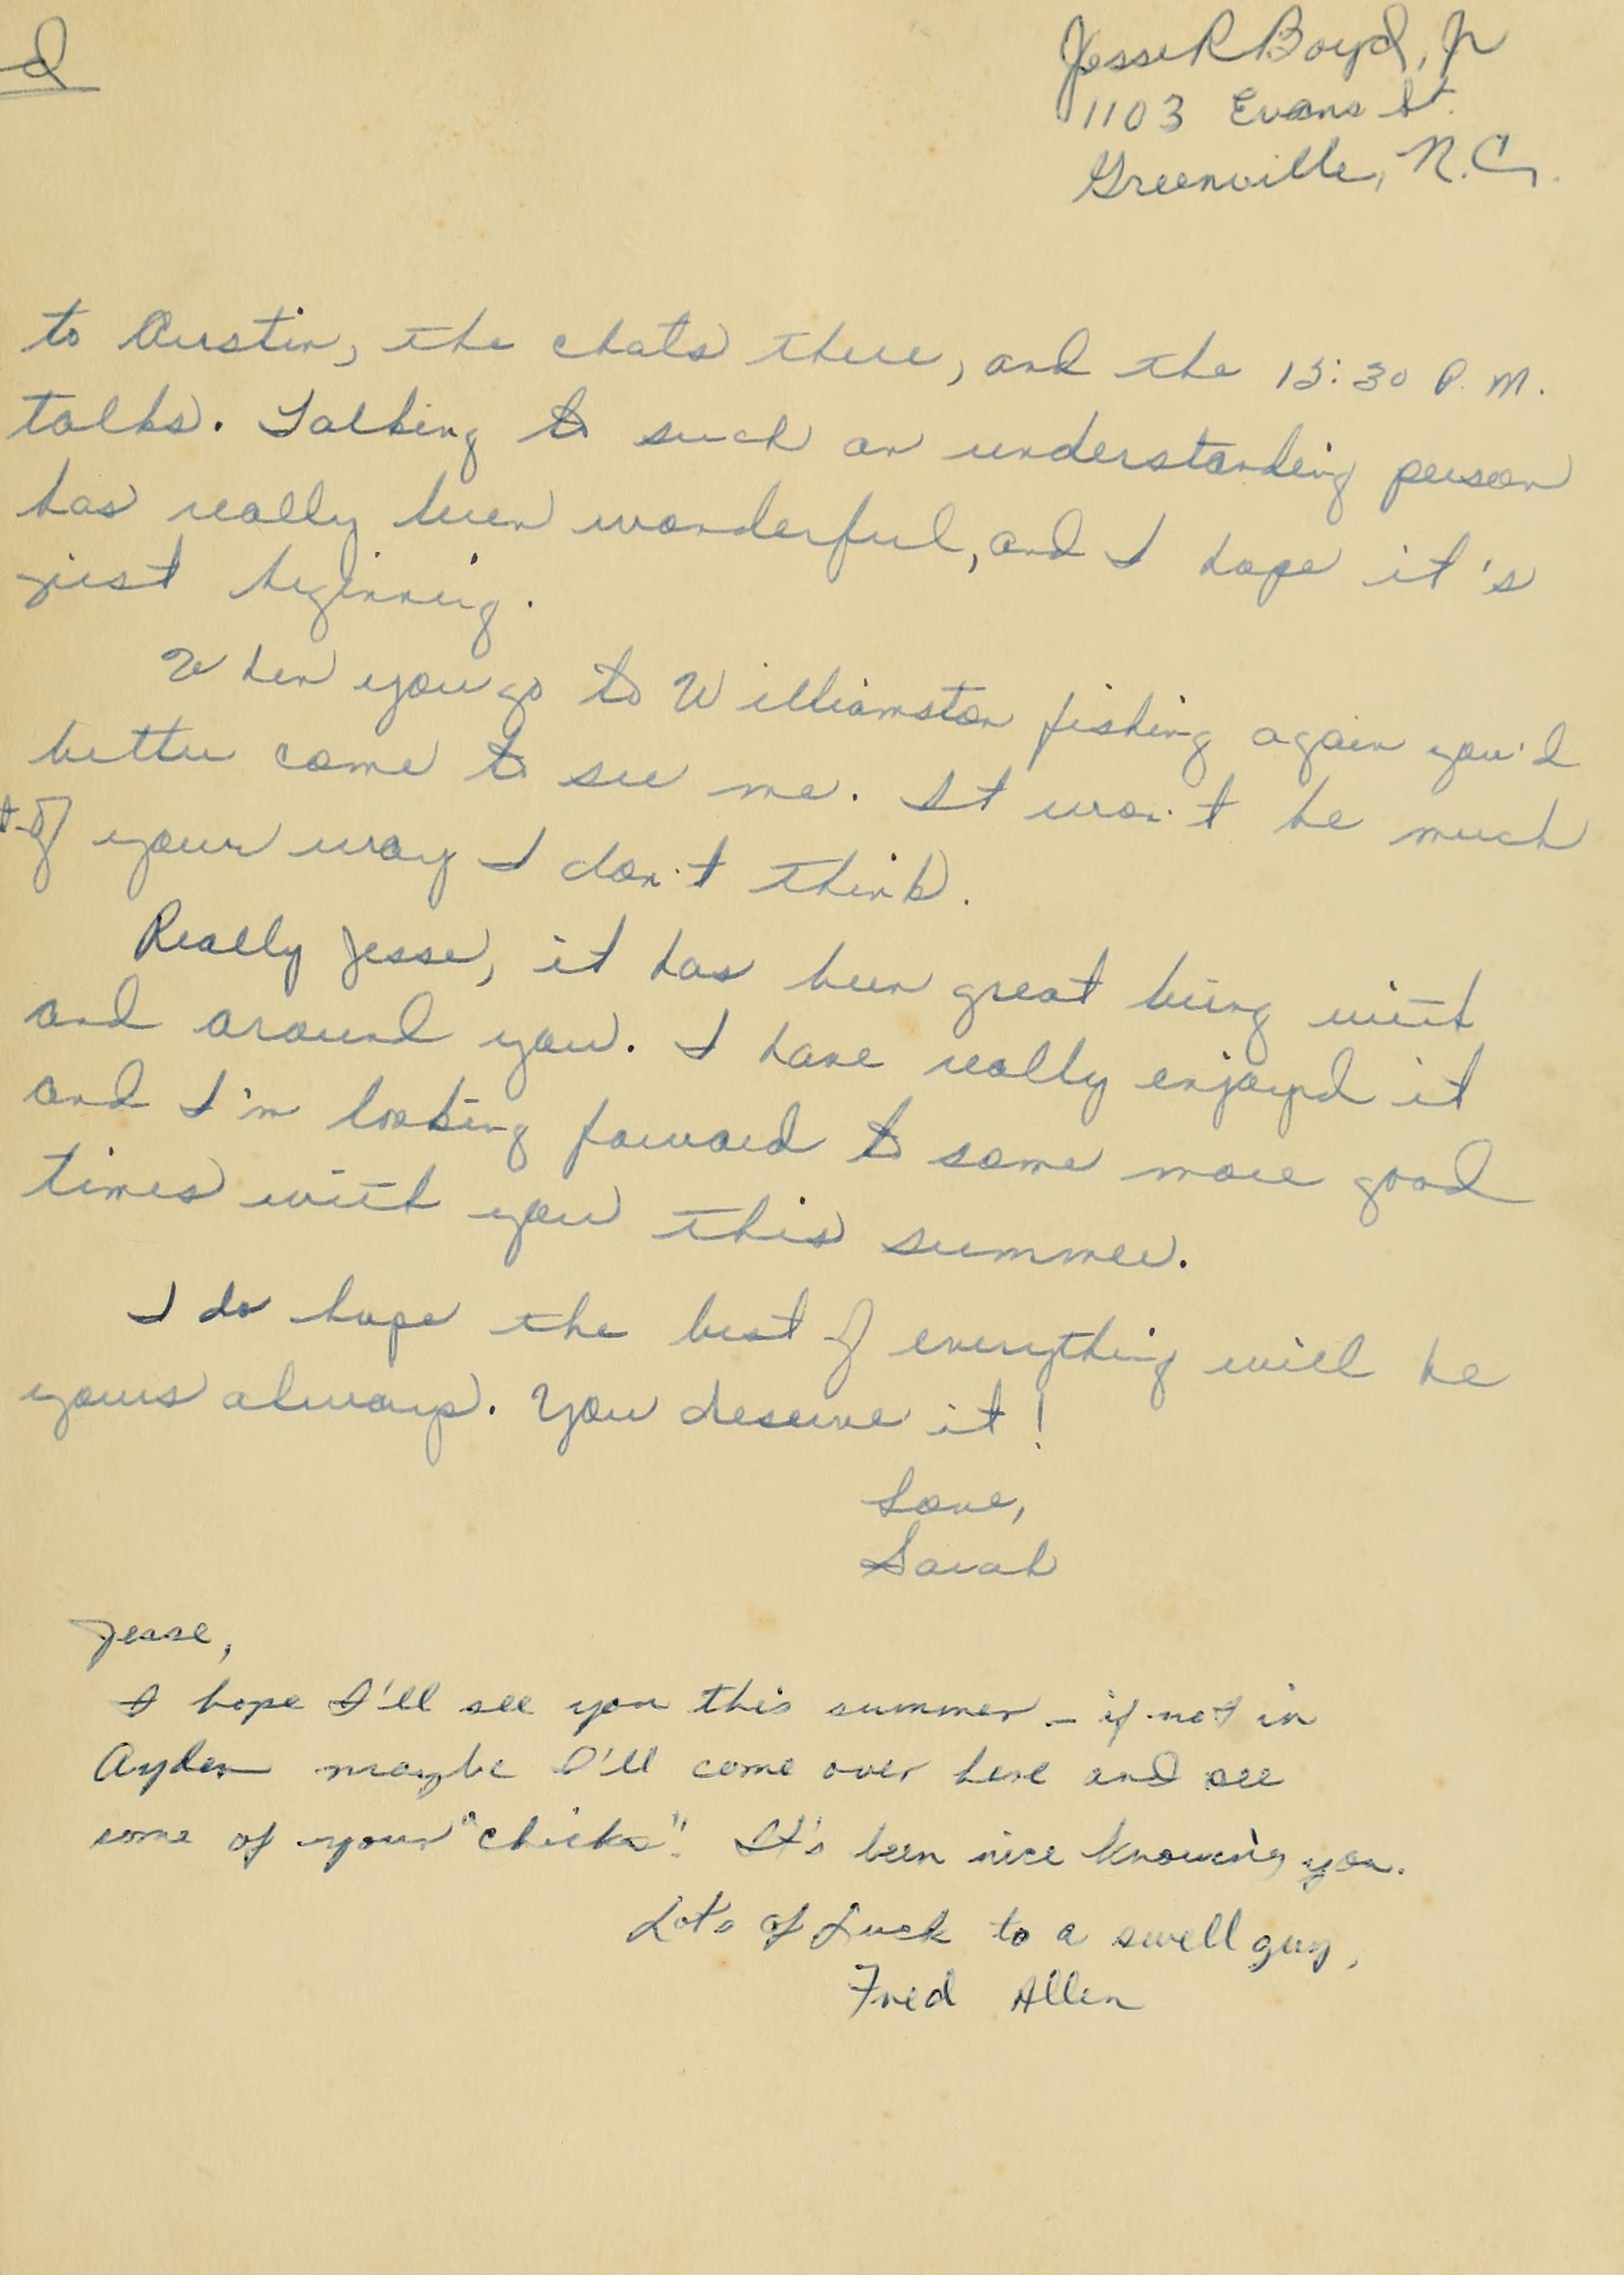 d
Jesse R Boyd, Jr
1103 Evans St.
Greenville, N.C.
to Austin, the chats there, and the 15:30 P.M.
talks. Talking to such an understanding person
has really been wonderful, and I hope it's
just beginning.
When you go to Williamston fishing again you'd
better come to see me. It won't be much
of your way I don't think.
Really Jesse, it has been great being with
and around you. I have really enjoyd it
and I'm looking foward to some more good
times with you this summer.
I do hope the best of everything will be
yours always. You deserve it!
Love,
Sarah
Jesse,
I hope I'll see you this summer - if not in
Ayden maybe I'll come over here and see
some of your "chicks". It's been nice knowing you.
Lots of Luck to a swell guy,
Fred Allen